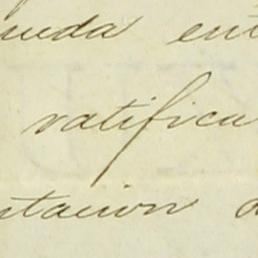 ueda ent
ratifica
ntacion d